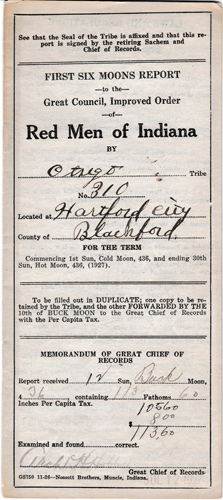 See that the Seal of the Tribe is affixed and that this re-
port is signed by the retiring Sachem and
Chief of Records.
FIRST SIX MOONS REPORT
—to the—
Great Council, Improved Order
—of—
Red Men of Indiana
BY
Otsego Tribe
No. 310
Located at Hartford City
County of Blackford
FOR THE TERM
Commencing 1st Sun, Cold Moon, 436, and ending 30th
Sun, Hot Moon, 436, (1927).
To be filled out in DUPLICATE; one copy to be re-
tained by the Tribe, and the other FORWARDED BY THE
10th OF BUCK MOON to the Great Chief of Records
with the Per Capita Tax.
MEMORANDUM OF GREAT CHIEF OF
RECORDS
Report received 12 Sun, Buck Moon,
436 containing 113 Fathoms 60
Inches Per Capita Tax.
105 60
8 00
113.60
Examined and found correct.
Great Chief of Records
GS150 11-26—Nossett Brothers, Muncie, Indiana.